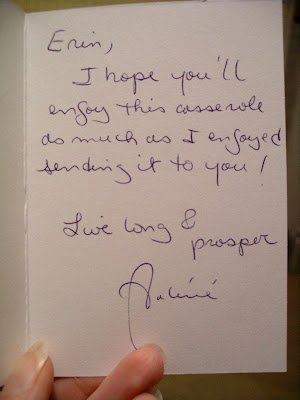 Erin,
I hope you'll
enjoy this casserole
as much as I enjoyed
sending it to you!
Live long &
prosper